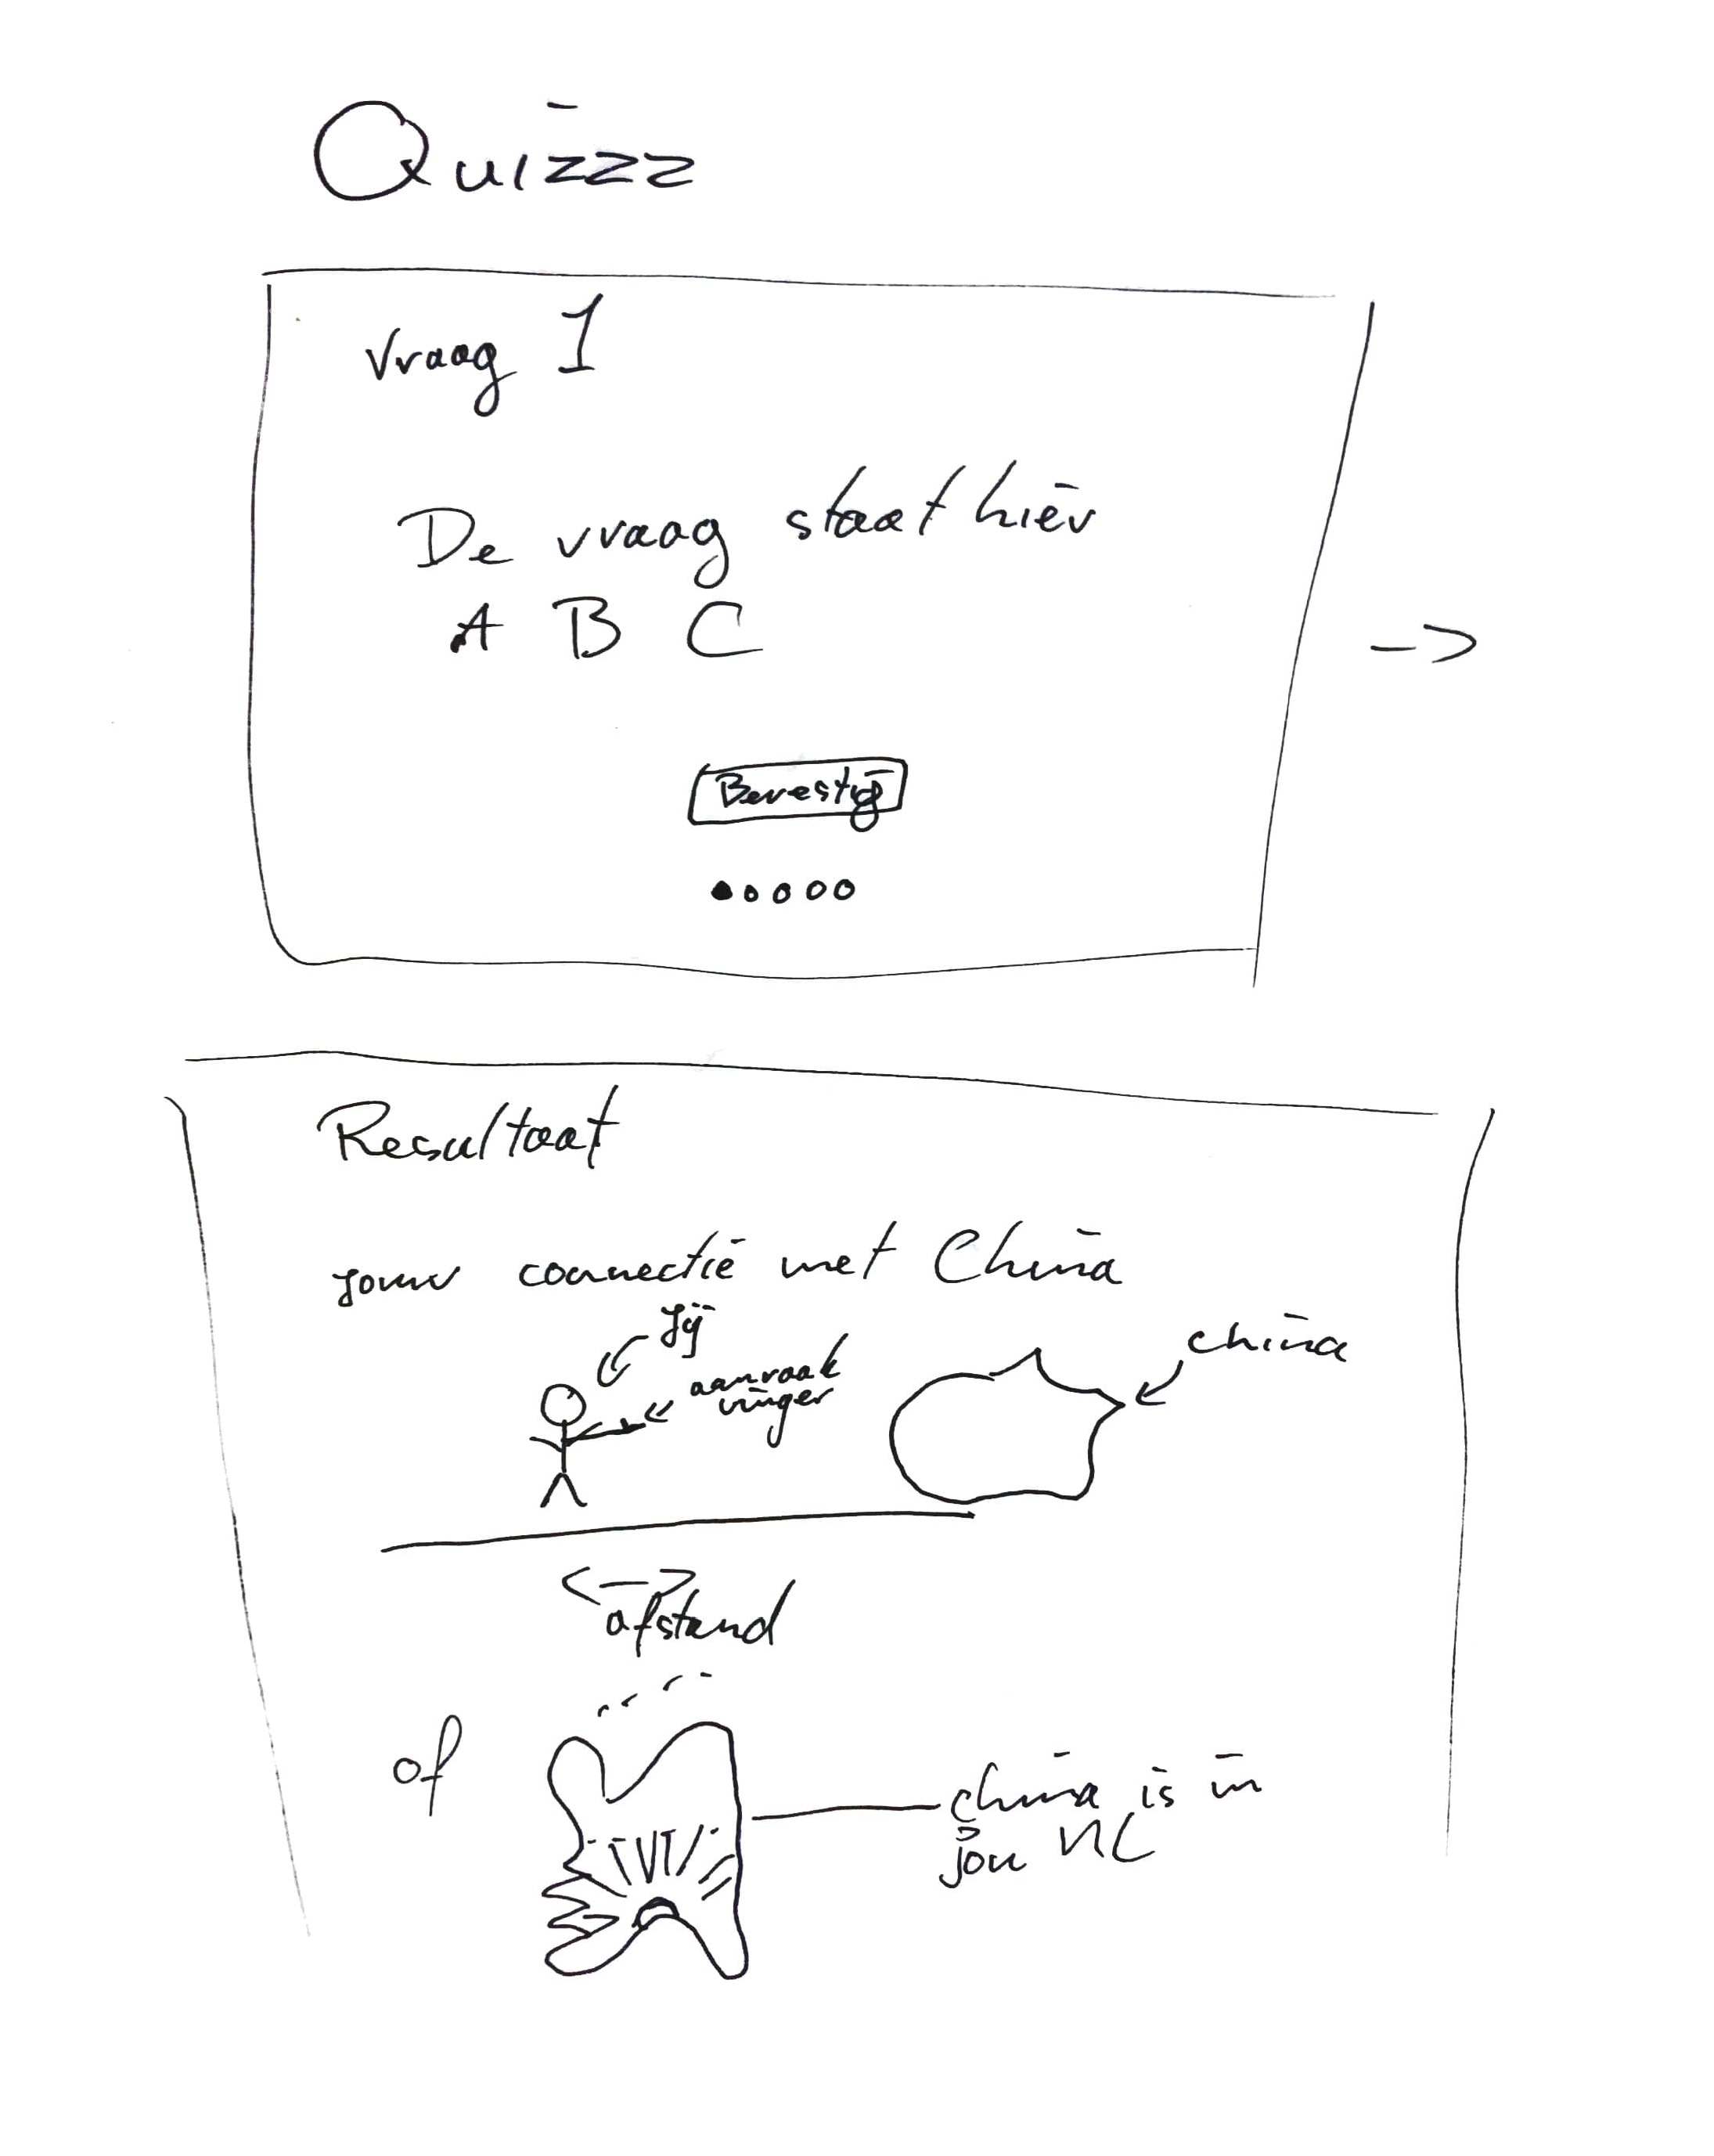 Quizzz
Vraag 1
De vraag staat hier
A B C
->
Bevestig
Resultaat
jouw connectie met China
Jij
aanraak
vinger
china
<->
afstand
of
china is in
jou NL